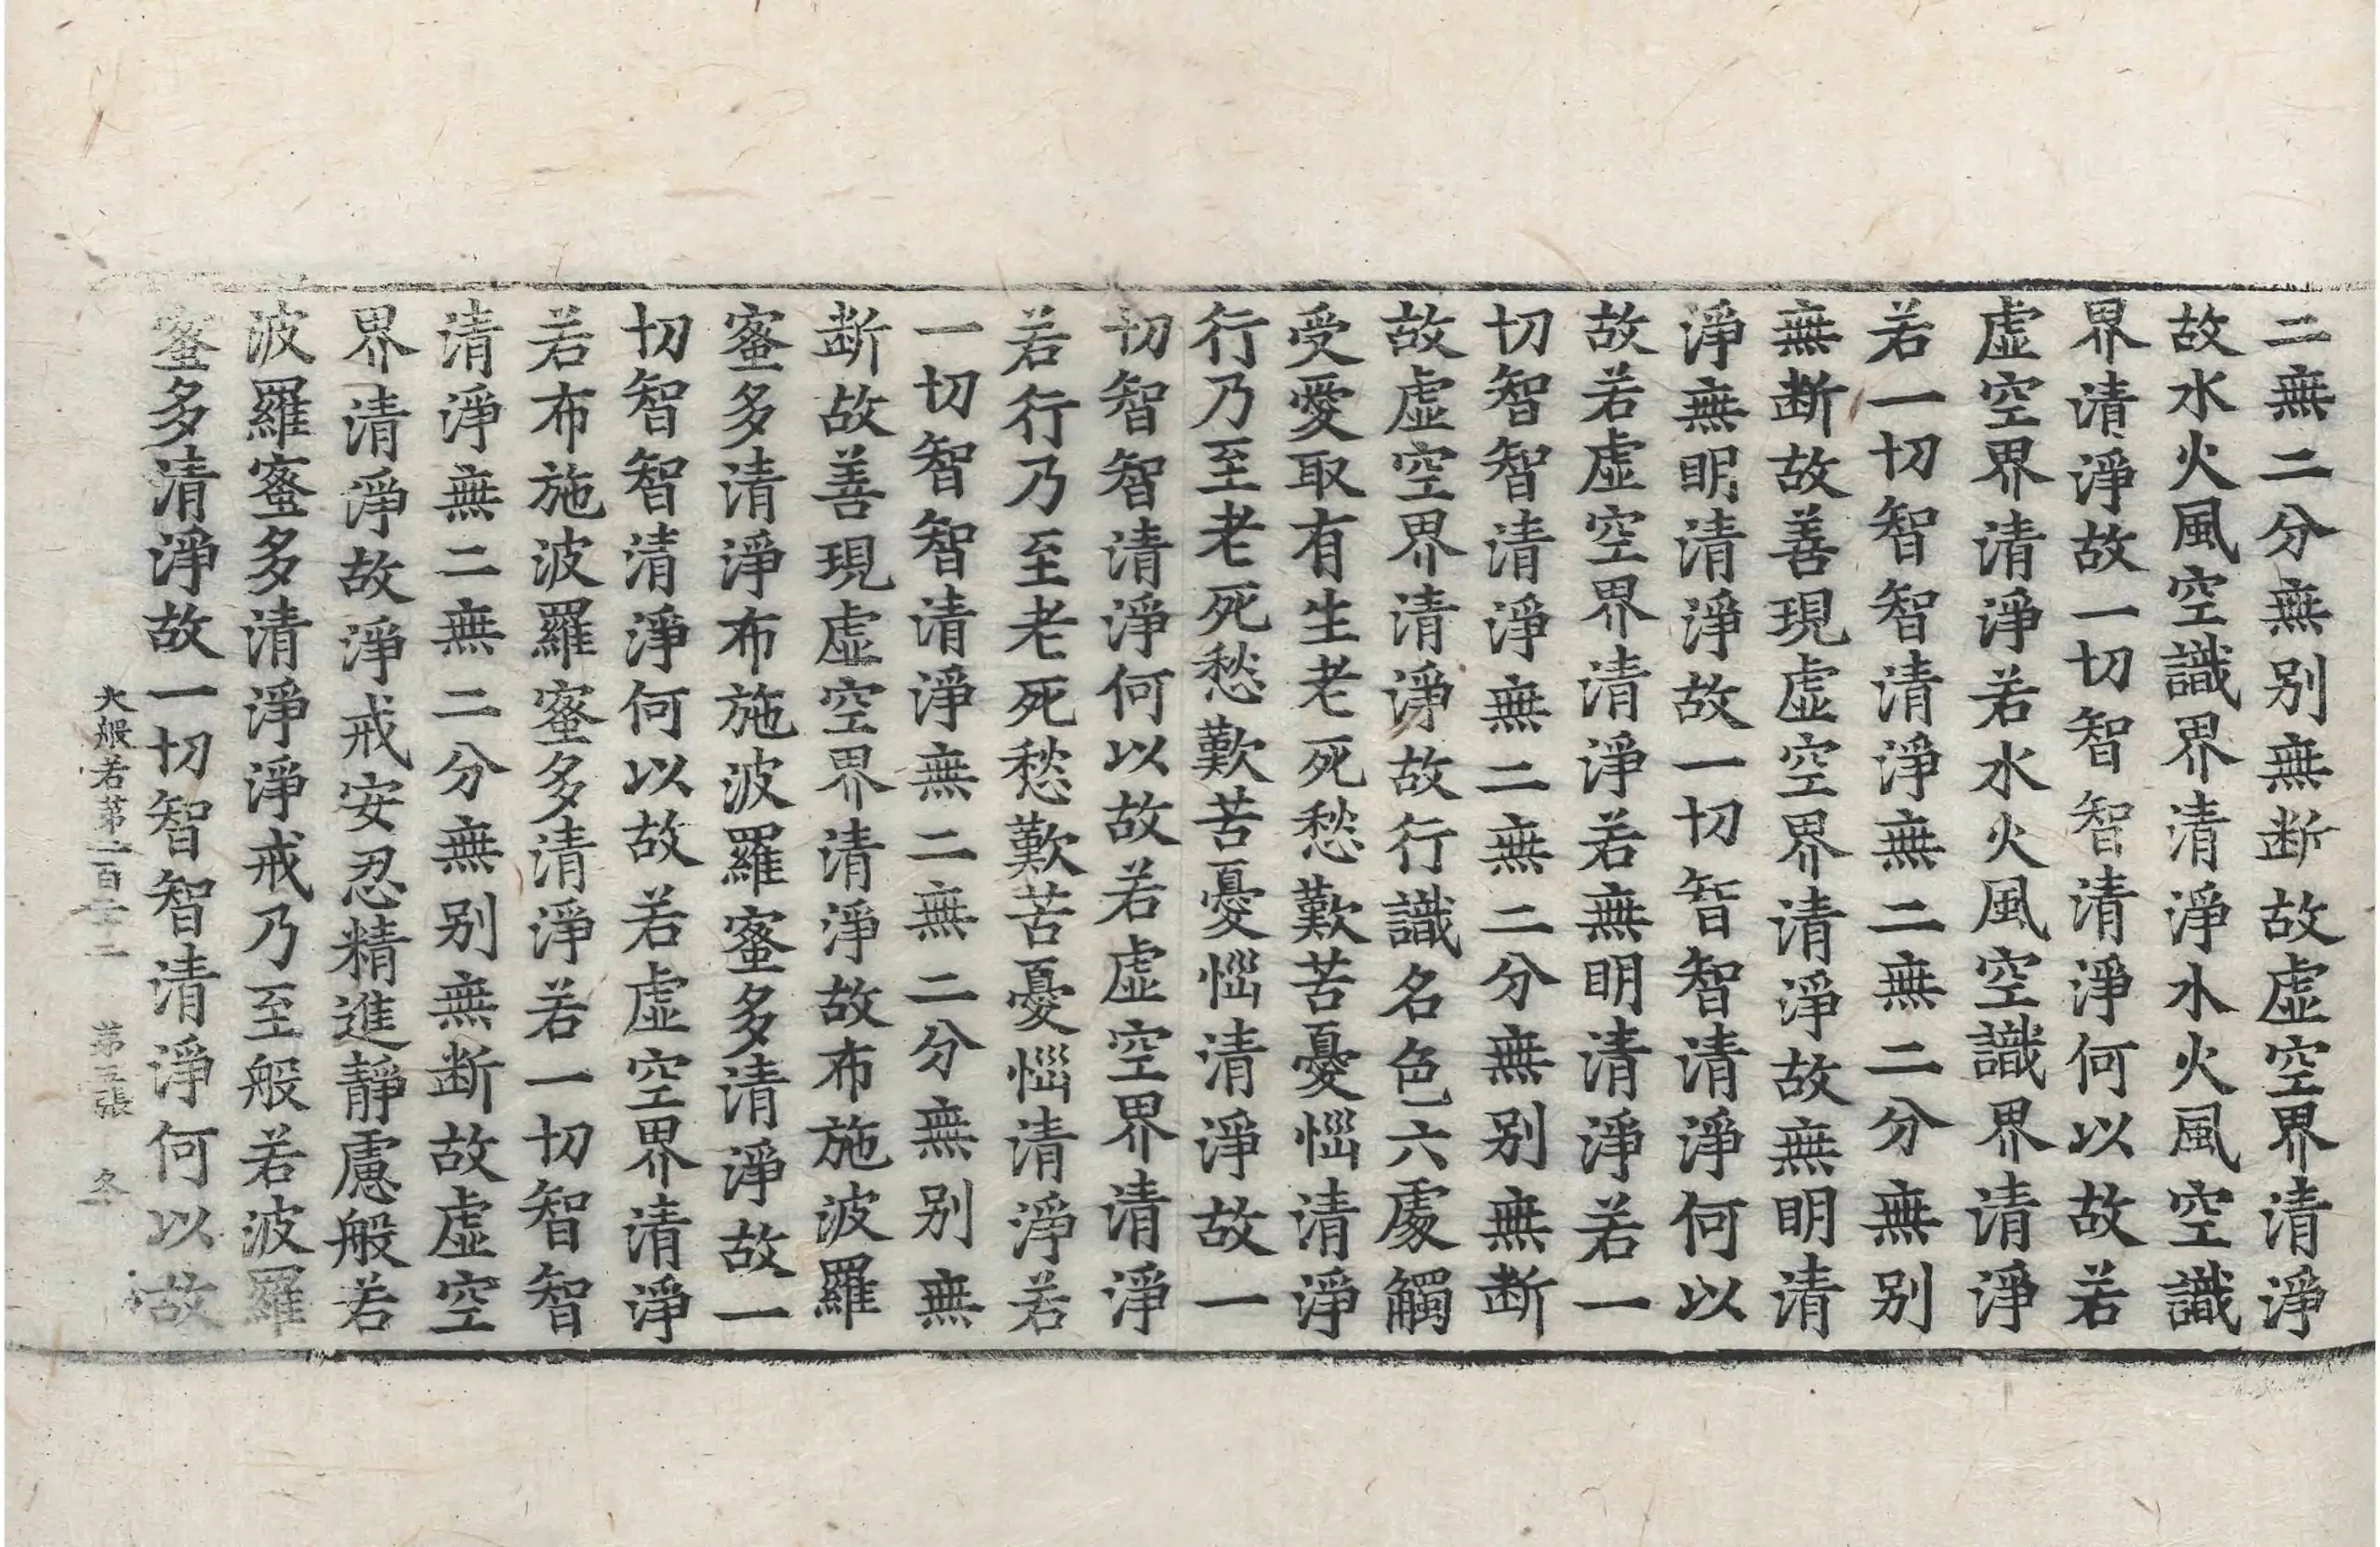 二無二分無别無断故虛空界清淨
故水火風空識界清淨水火風空識
界清淨故一切智智清淨何以故若
虛空界清淨若水火風空識界清淨
若一切智智清淨無二無二分無别
無断故善現虛空界清淨故無明清
淨無明清淨故一切智智清淨何以
故若虛空界清淨若無明清淨若一
切智智清淨無二無二分無别無断
故虛空界清淨故行識名色六處觸
受愛取有生老死愁歎苦憂惱清淨
行乃至老死愁歎苦憂惱清淨故一
切智智清淨何以故若虛空界清淨
若行乃至老死愁歎苦憂惱清淨若
一切智智清淨無二無二分無别無
断故善現虛空界清淨故布施波羅
蜜多清淨布施波羅蜜多清淨故一
切智智清淨何以故若虛空界清淨
若布施波羅蜜多清淨若一切智智
清淨無二無二分無别無断故虛空
界清淨故淨戒安忍精進靜慮般若
波羅蜜多清淨淨戒乃至般若波羅
蜜多清淨故一切智智清淨何以故
大般若第二百 二 第五張 冬